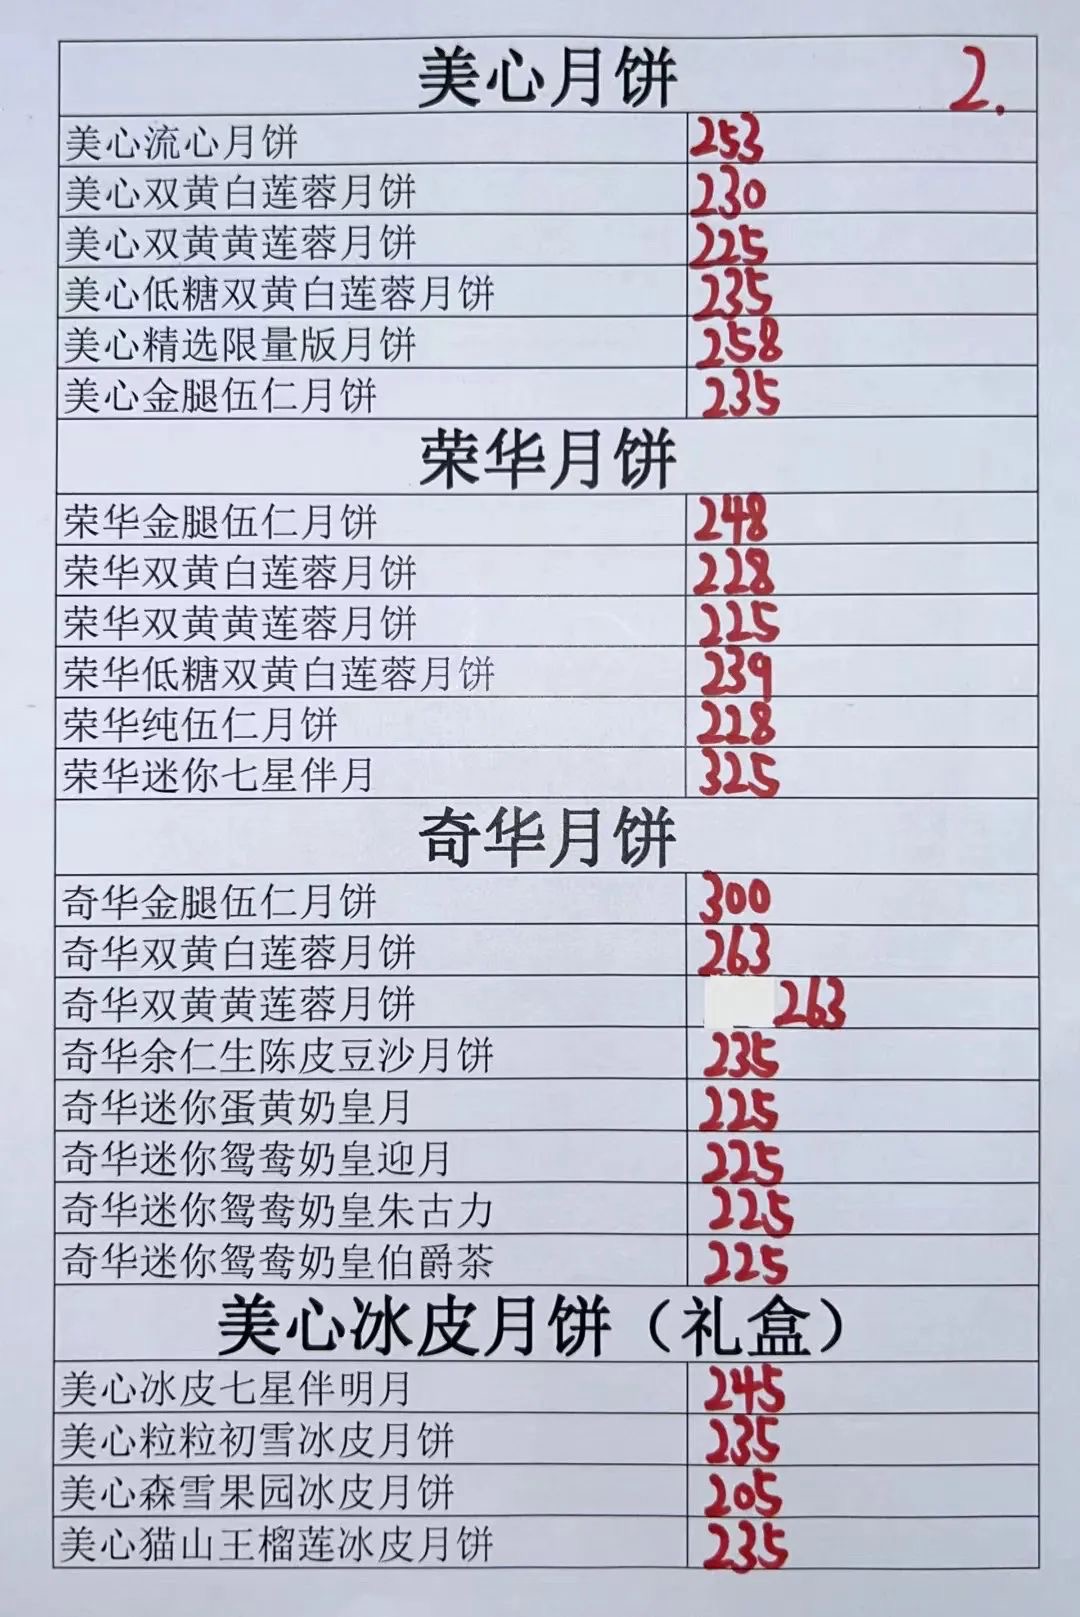 美心月饼 2.
美心流心月饼 253
美心双黄白莲蓉月饼 230
美心双黄黄莲蓉月饼 225
美心低糖双黄白莲蓉月饼 235
美心精选限量版月饼 258
美心金腿伍仁月饼 235
荣华月饼
荣华金腿伍仁月饼 248
荣华双黄白莲蓉月饼 228
荣华双黄黄莲蓉月饼 225
荣华低糖双黄白莲蓉月饼 239
荣华纯伍仁月饼 228
荣华迷你七星伴月 325
奇华月饼
奇华金腿伍仁月饼 300
奇华双黄白莲蓉月饼 263
奇华双黄黄莲蓉月饼 263
奇华余仁生陈皮豆沙月饼 235
奇华迷你蛋黄奶皇月 225
奇华迷你鸳鸯奶皇迎月 225
奇华迷你鸳鸯奶皇朱古力 225
奇华迷你鸳鸯奶皇伯爵茶 225
美心冰皮月饼（礼盒）
美心冰皮七星伴明月 245
美心粒粒初雪冰皮月饼 235
美心森雪果园冰皮月饼 205
美心猫山王榴莲冰皮月饼 235